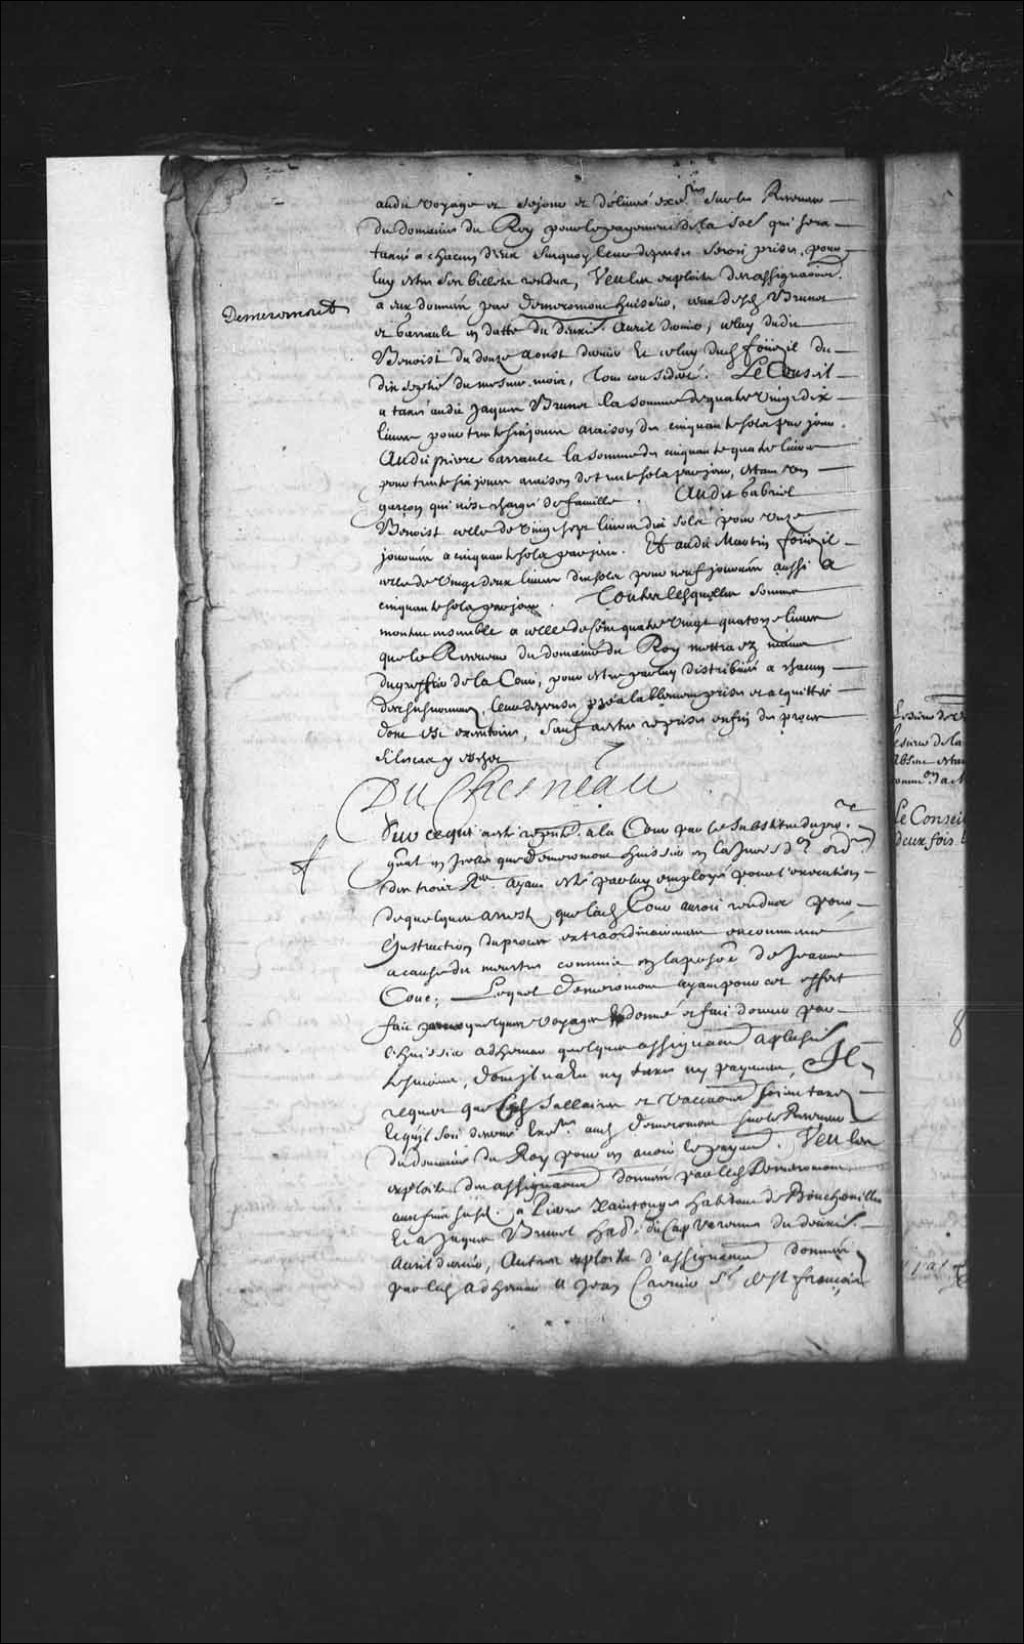 audit voyage et sejour et délivré exe.res sur les Revenus
du domaine du Roy pour le payement de la so.e qui sera
taxée a chacun d'eux surquoy leurs depenses seroit prises, pour
luy estre son billet rendu, Veu les exploits d'assignaõns
Demeromont
a eux donnés par Demeromont huissier, ceux desd. Brunet
et barrault en datte du dernier Avril dernier, celuy dudit
Benoist du douze Aoust dernier Et celuy dud. foüezil du
dix sept.e du mesme mois, Tout considéré. Le Conseil
a taxé audit Jaques Brunet la somme de quatre vingt dix
livres pour trente six jours a raison de cinquante sols par jour.
Audit pierre barrault la somme de cinquante quatre livres
pour trente six jours a raison de trente sols par jour, estant un
garçon qui n'est chargé de famille. Audit Gabriel
Benoist celle de vingt sept livres dix sols pour unze
journées a cinquante sols par jour. Et audit Martin foüezil
celle de vingt deux livres dix sols pour neuf journées aussi a
cinquante sols par jour. Toutes lesquelles sommes
montent ensemble a celle de Cent quatre vingt quatorze livres
que le Receveur du domaine du Roy mettra ez mains
du greffier de la Cour, pour estre par luy distribuées a chacun
des susnommez, leurs depenses préalablement prises et acquittées
dont est executoire, sauf a estre reprises enfin de procez
si lieu y eschet
DuChesneau
Sur ce qui a esté representé a la Cour par le Substitut du pro.r
g'nal en icelle que Demeromont huissier en la Jurisd.on ord.re
des trois R.res ayant esté par luy employé pour l'execution
de quelques arrests que lad. Cour auroit rendus pour
l'instruction du procez extraordinairement encommencé
a cause du meurtre commis en la personne de Jeanne
Couc, Lequel Demeromont ayant pour cet effect
fait quelques voyages donné et fait donner par
l'huissier adhemar quelques assignaõns a plusieurs
tesmoins, dont il n'a eu ny taxe ny payement, Il
requiert que lesd. sallaires et vaccaõns soient taxez
Et qu'il soit delivré Exe.re aud. Demeromont sur le Receveur
du domaine du Roy pour en avoir le payem.t. Veu les
exploits d'assignaõns donnés par led. Demeromont
aux fins susd. a Pierre Xaintonge habitant de Boucherville
Et a Jaques Brunet hab.t du Cap Varennes du dernier
Avril dernier, Autres exploits d'assignaõns donnés
par led. Adhemar a Jean Crevier S.r de S.t françois
Le Conseil
deux fois
8